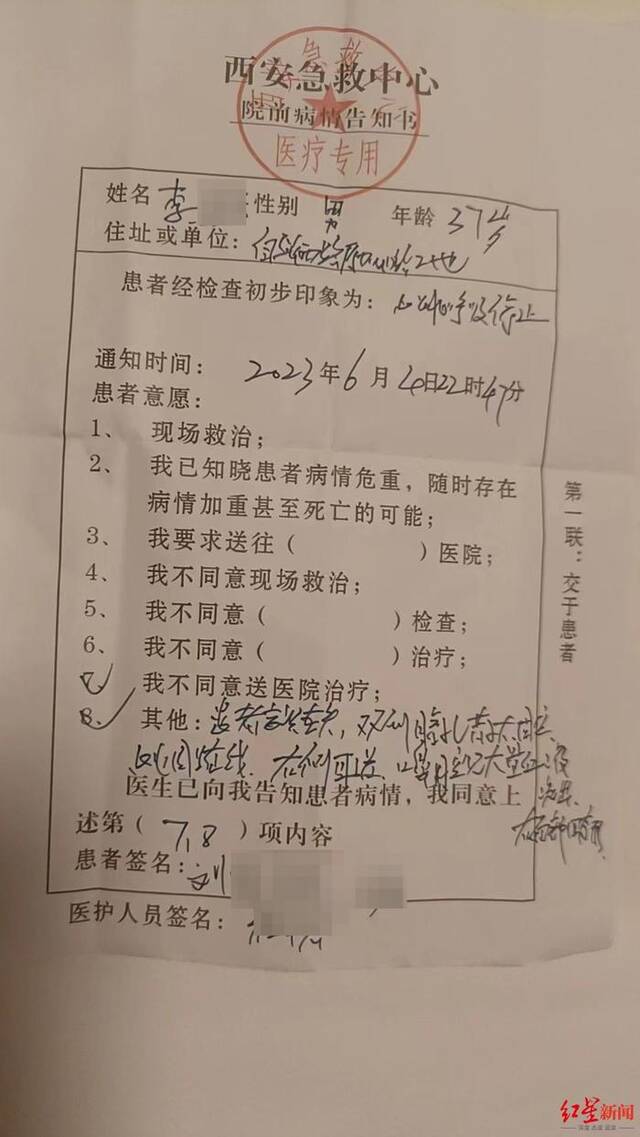 西安急救中心
院前病情告知书
医疗专用
姓名 李 性别 男 年龄 37岁
住址或单位：
患者经检查初步印象为：心跳呼吸停止
通知时间： 2023年6月4日22时47分
患者意愿：
1、 现场救治；
2、 我已知晓患者病情危重，随时存在
病情加重甚至死亡的可能；
3、 我要求送往（ ）医院；
4、 我不同意现场救治；
5、 我不同意（ ）检查；
6、 我不同意（ ）治疗；
7、 我不同意送医院治疗；
8、 其他：患者意识丧失，双侧瞳孔散大固定
心电图直线、右侧耳道、口鼻可见大量血液
医生已向我告知患者病情，我同意上
述第（ 7,8 ）项内容
患者签名：刘
医护人员签名：
第一联：交于患者
红星新闻
深度 态度 温度